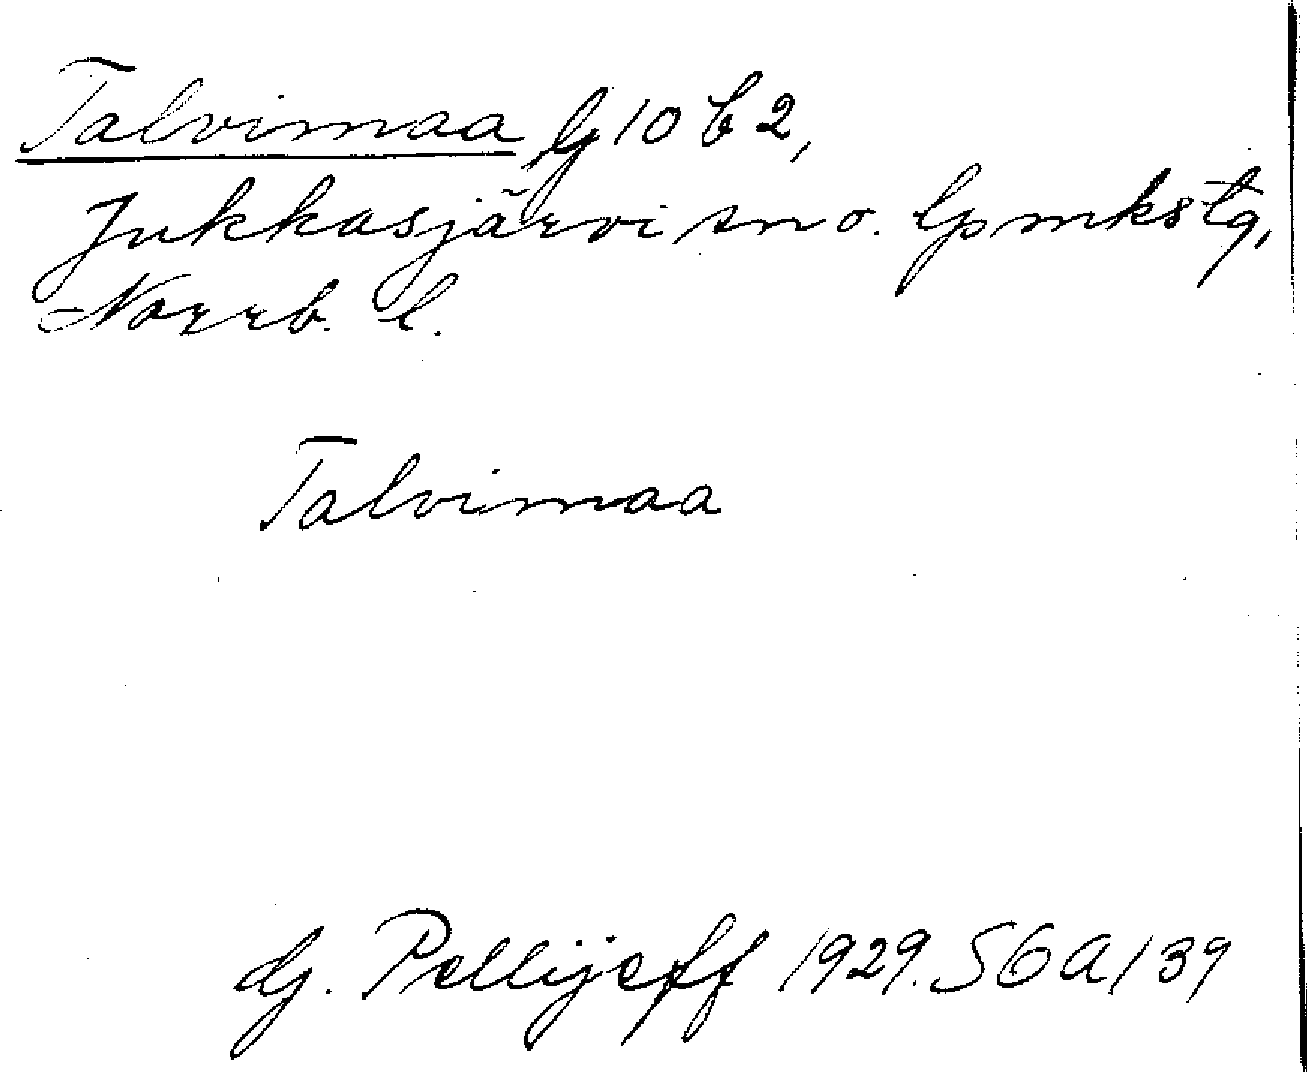 Talvimaa G 10 b 2,
Jukkasjärvi sn o. lpmkstg,
Norrb. l.
Talvimaa
G. Pellijeff 1929. SGA/39